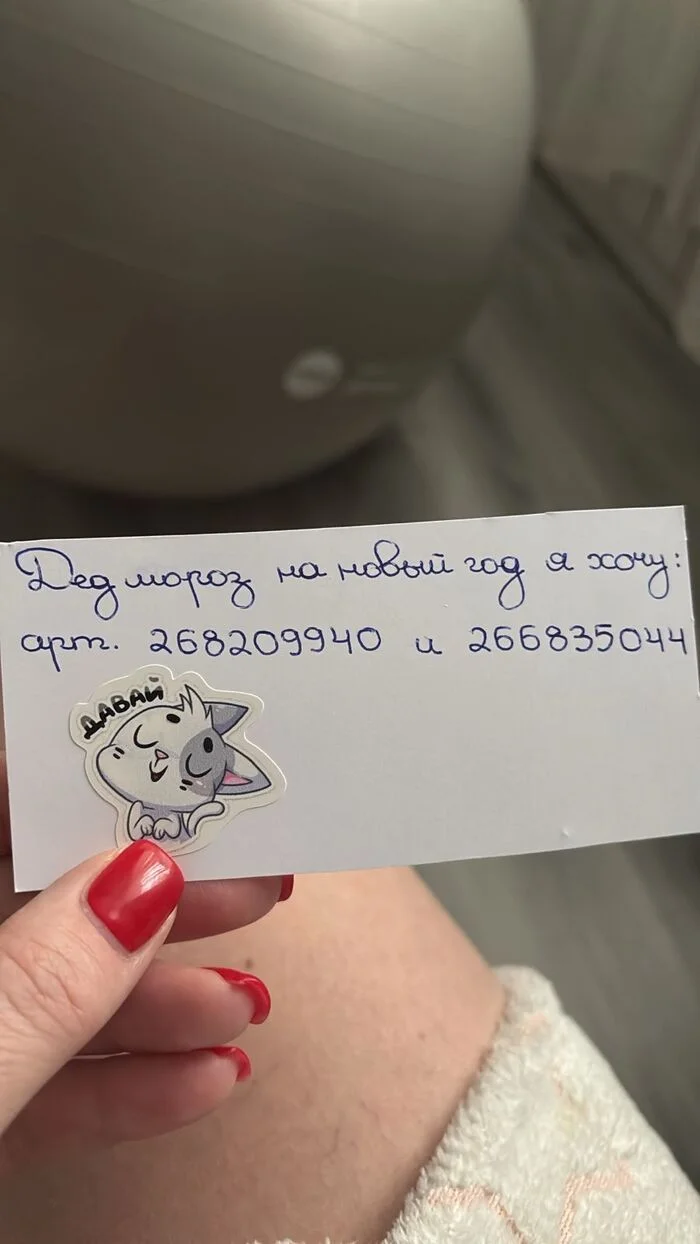 Дед мороз на новый год я хочу:
арт. 268209940 и 266835044
ДАВАЙ